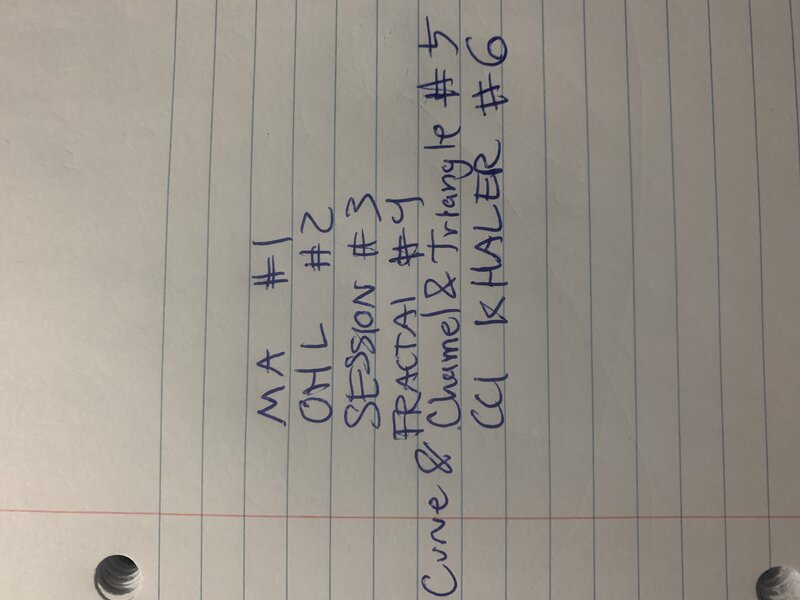 MA #1
OHL #2
SESSION #3
FRACTAl #4
Curve & Channel & Triangle #5
CCI KHALER #6